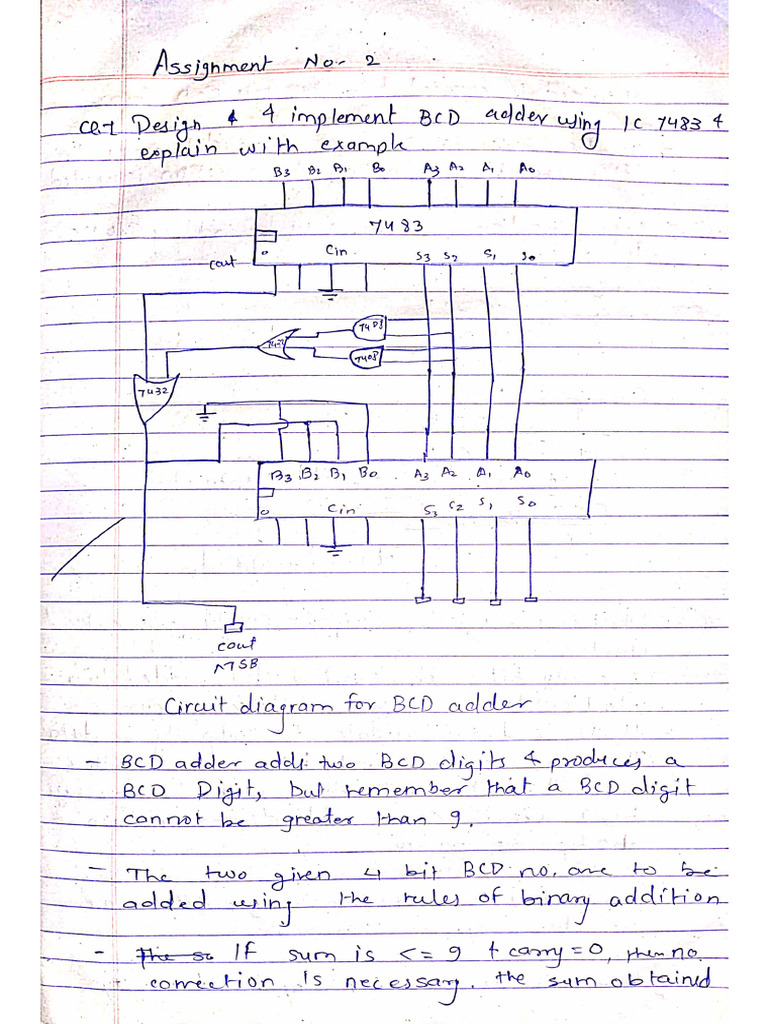 Assignment No- 2
Q-1 Design & & implement BCD adder using IC 7483 &
explain with example
B3 B2 B1 B0 A3 A2 A1 A0
7483
Cin S3 S2 S1 S0
cout
7408
7432
7408
7432
B3 B2 B1 B0 A3 A2 A1 A0
Cin S3 C2 S1 S0
cout
MSB
Circuit diagram for BCD adder
- BCD adder adds two BCD digits & produces a
BCD Digit, but remember that a BCD digit
cannot be greater than 9.
- The two given 4 bit BCD no. are to be
added using the rules of binary addition
- The so If sum is <= 9 & carry = 0, then no
correction is necessary. the sum obtained